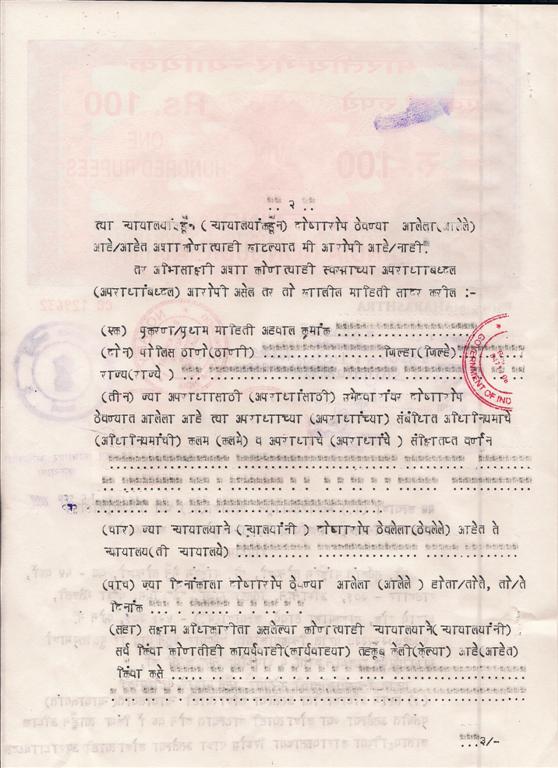 .. २ ..
त्या न्यायालयांकडून (न्यायालयांकडून) दोषारोप ठेवण्या आलेला(आलेले)
आहे/आहेत अशा कोणत्याही खटल्यात मी आरोपी आहे/नाही.
तर अभिसाक्षी अशा कोणत्याही स्वरूपाच्या अपराधाबद्दल
(अपराधांबद्दल) आरोपी असेल तर तो खालील माहिती सादर करील :-
(एक) प्रकरण/प्रथम माहिती अहवाल क्रमांक
(दोन) पोलिस ठाणे(ठाणी) जिल्हा(जिल्हे)
राज्य(राज्ये)
(तीन) ज्या अपराधासाठी (अपराधांसाठी) उमेदवारांवर दोषारोप
ठेवण्यात आलेला आहे त्या अपराधाच्या (अपराधांच्या) संबंधीत अधिनियमाचे
(अधिनियमांची) कलम (कलमे) व अपराधाचे (अपराधांचे) संक्षिप्त वर्णन
(चार) ज्या न्यायालयाने (न्यालयांनी) दोषारोप ठेवलेला(ठेवलेले) आहेत ते
न्यायालय(ती न्यायालये)
(पाच) ज्या दिनांकाला दोषारोप ठेवण्या आलेला (आलेले) होता/होते, तो/ते
दिनांक
(सहा) सक्षम अधिकारीता असलेल्या कोणत्याही न्यायालयाने(न्यायालयांनी)
सर्व किंवा कोणतीही कार्यवाही(कार्यवाहया) तहकूब केली(केल्या) आहे(आहेत)
किंवा कसे
GOVERNMENT OF IND
...३/-